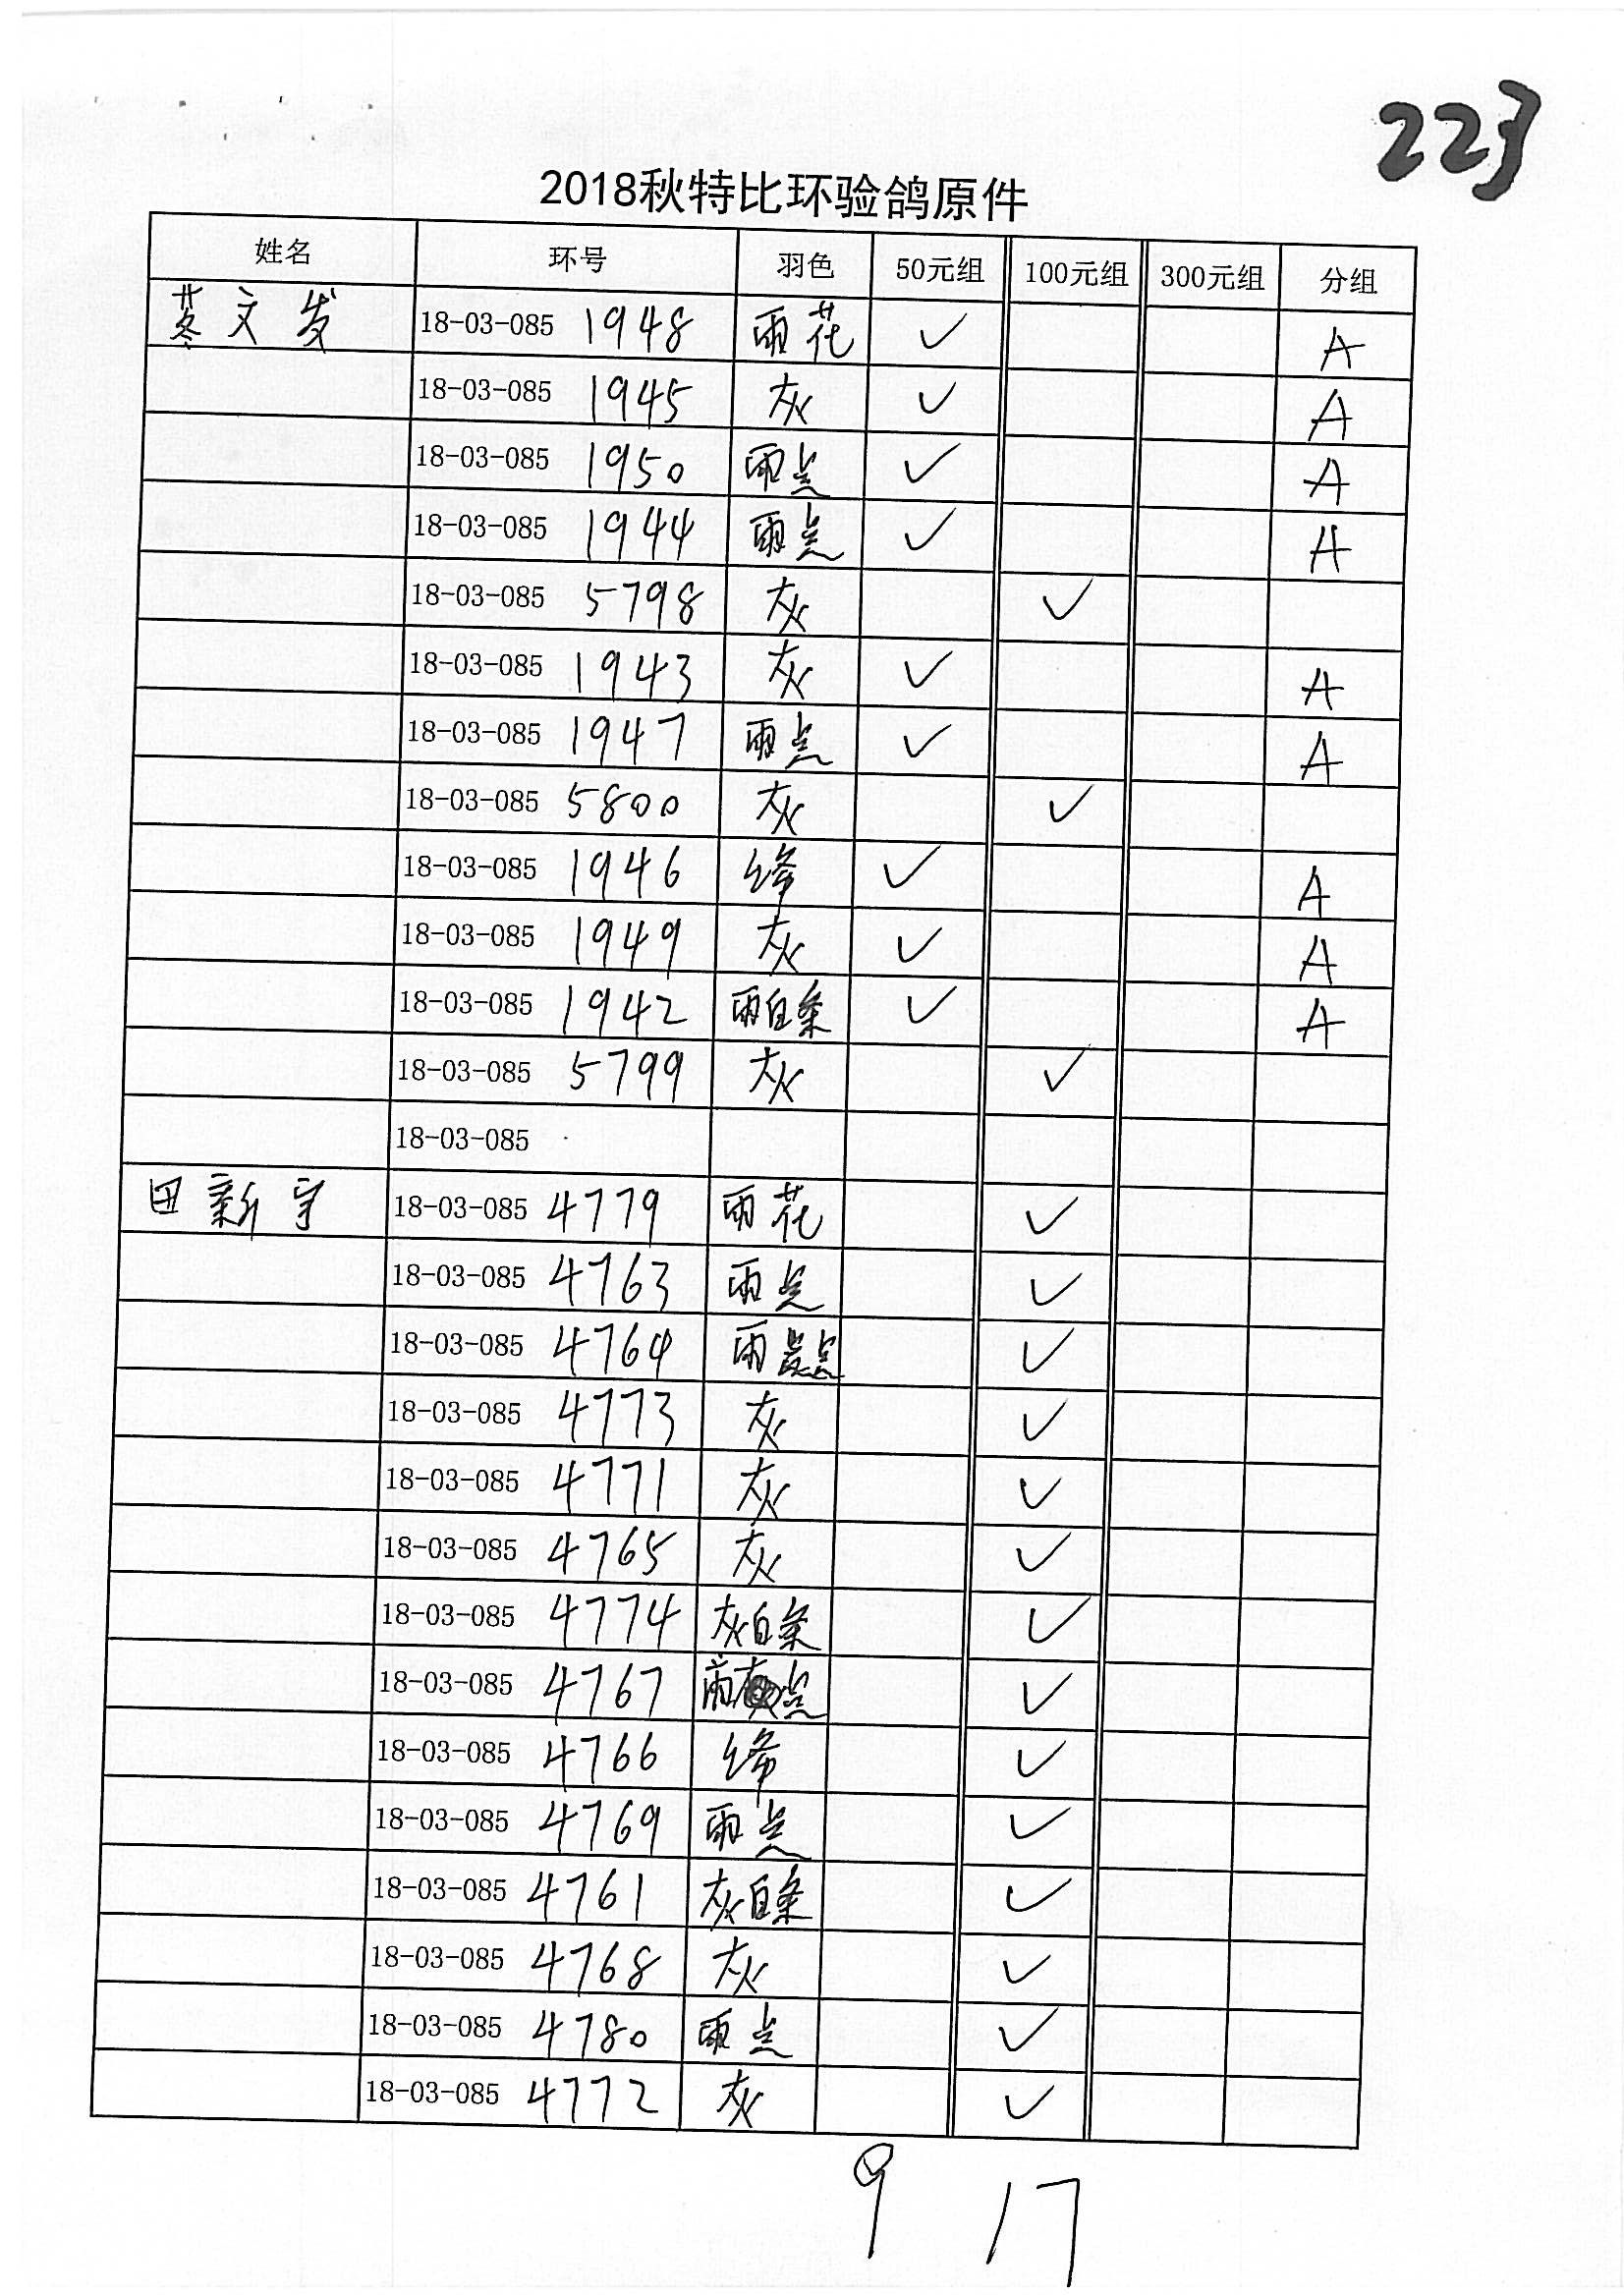 223
2018秋特比环验鸽原件
姓名 环号 羽色 50元组 100元组 300元组 分组
文发 18-03-085 1948 雨花 ✓ A
18-03-085 1945 灰 ✓ A
18-03-085 1950 雨点 ✓ A
18-03-085 1944 雨点 ✓ A
18-03-085 5798 灰 ✓
18-03-085 1943 灰 ✓ A
18-03-085 1947 雨点 ✓ A
18-03-085 5800 灰 ✓
18-03-085 1946 绛 ✓ A
18-03-085 1949 灰 ✓ A
18-03-085 1942 雨白条 ✓ A
18-03-085 5799 灰 ✓
18-03-085
田新宇 18-03-085 4779 雨花 ✓
18-03-085 4763 雨点 ✓
18-03-085 4764 雨点 ✓
18-03-085 4773 灰 ✓
18-03-085 4771 灰 ✓
18-03-085 4765 灰 ✓
18-03-085 4774 灰白条 ✓
18-03-085 4767 雨点 ✓
18-03-085 4766 绛 ✓
18-03-085 4769 雨点 ✓
18-03-085 4761 灰白条 ✓
18-03-085 4768 灰 ✓
18-03-085 4780 雨点 ✓
18-03-085 4772 灰 ✓
9 17